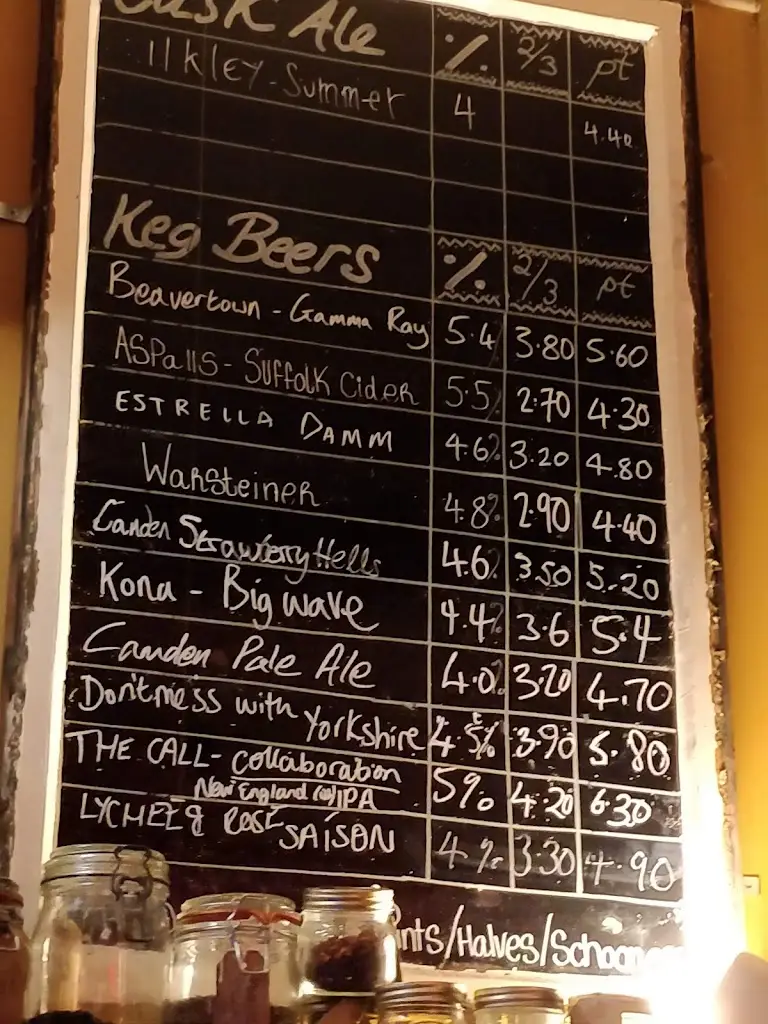 Cask Ale % 2/3 pt
Ilkley - Summer 4 4.40
Keg Beers % 2/3 pt
Beavertown - Gamma Ray 5.4 3.80 5.60
ASPallS - Suffolk Cider 5.5% 2.70 4.30
ESTRELLA DAMM 4.6% 3.20 4.80
Warsteiner 4.8% 2.90 4.40
Camden Strawberry Hells 4.6% 3.50 5.20
Kona - Big wave 4.4% 3.6 5.4
Camden Pale Ale 4.0% 3.20 4.70
Don't mess with Yorkshire 4.5% 3.90 5.80
THE CALL - collaboration 5% 4.20 6.30
New England IPA
LYCHEE & ROSE SAISON 4% 3.30 4.90
/Halves/